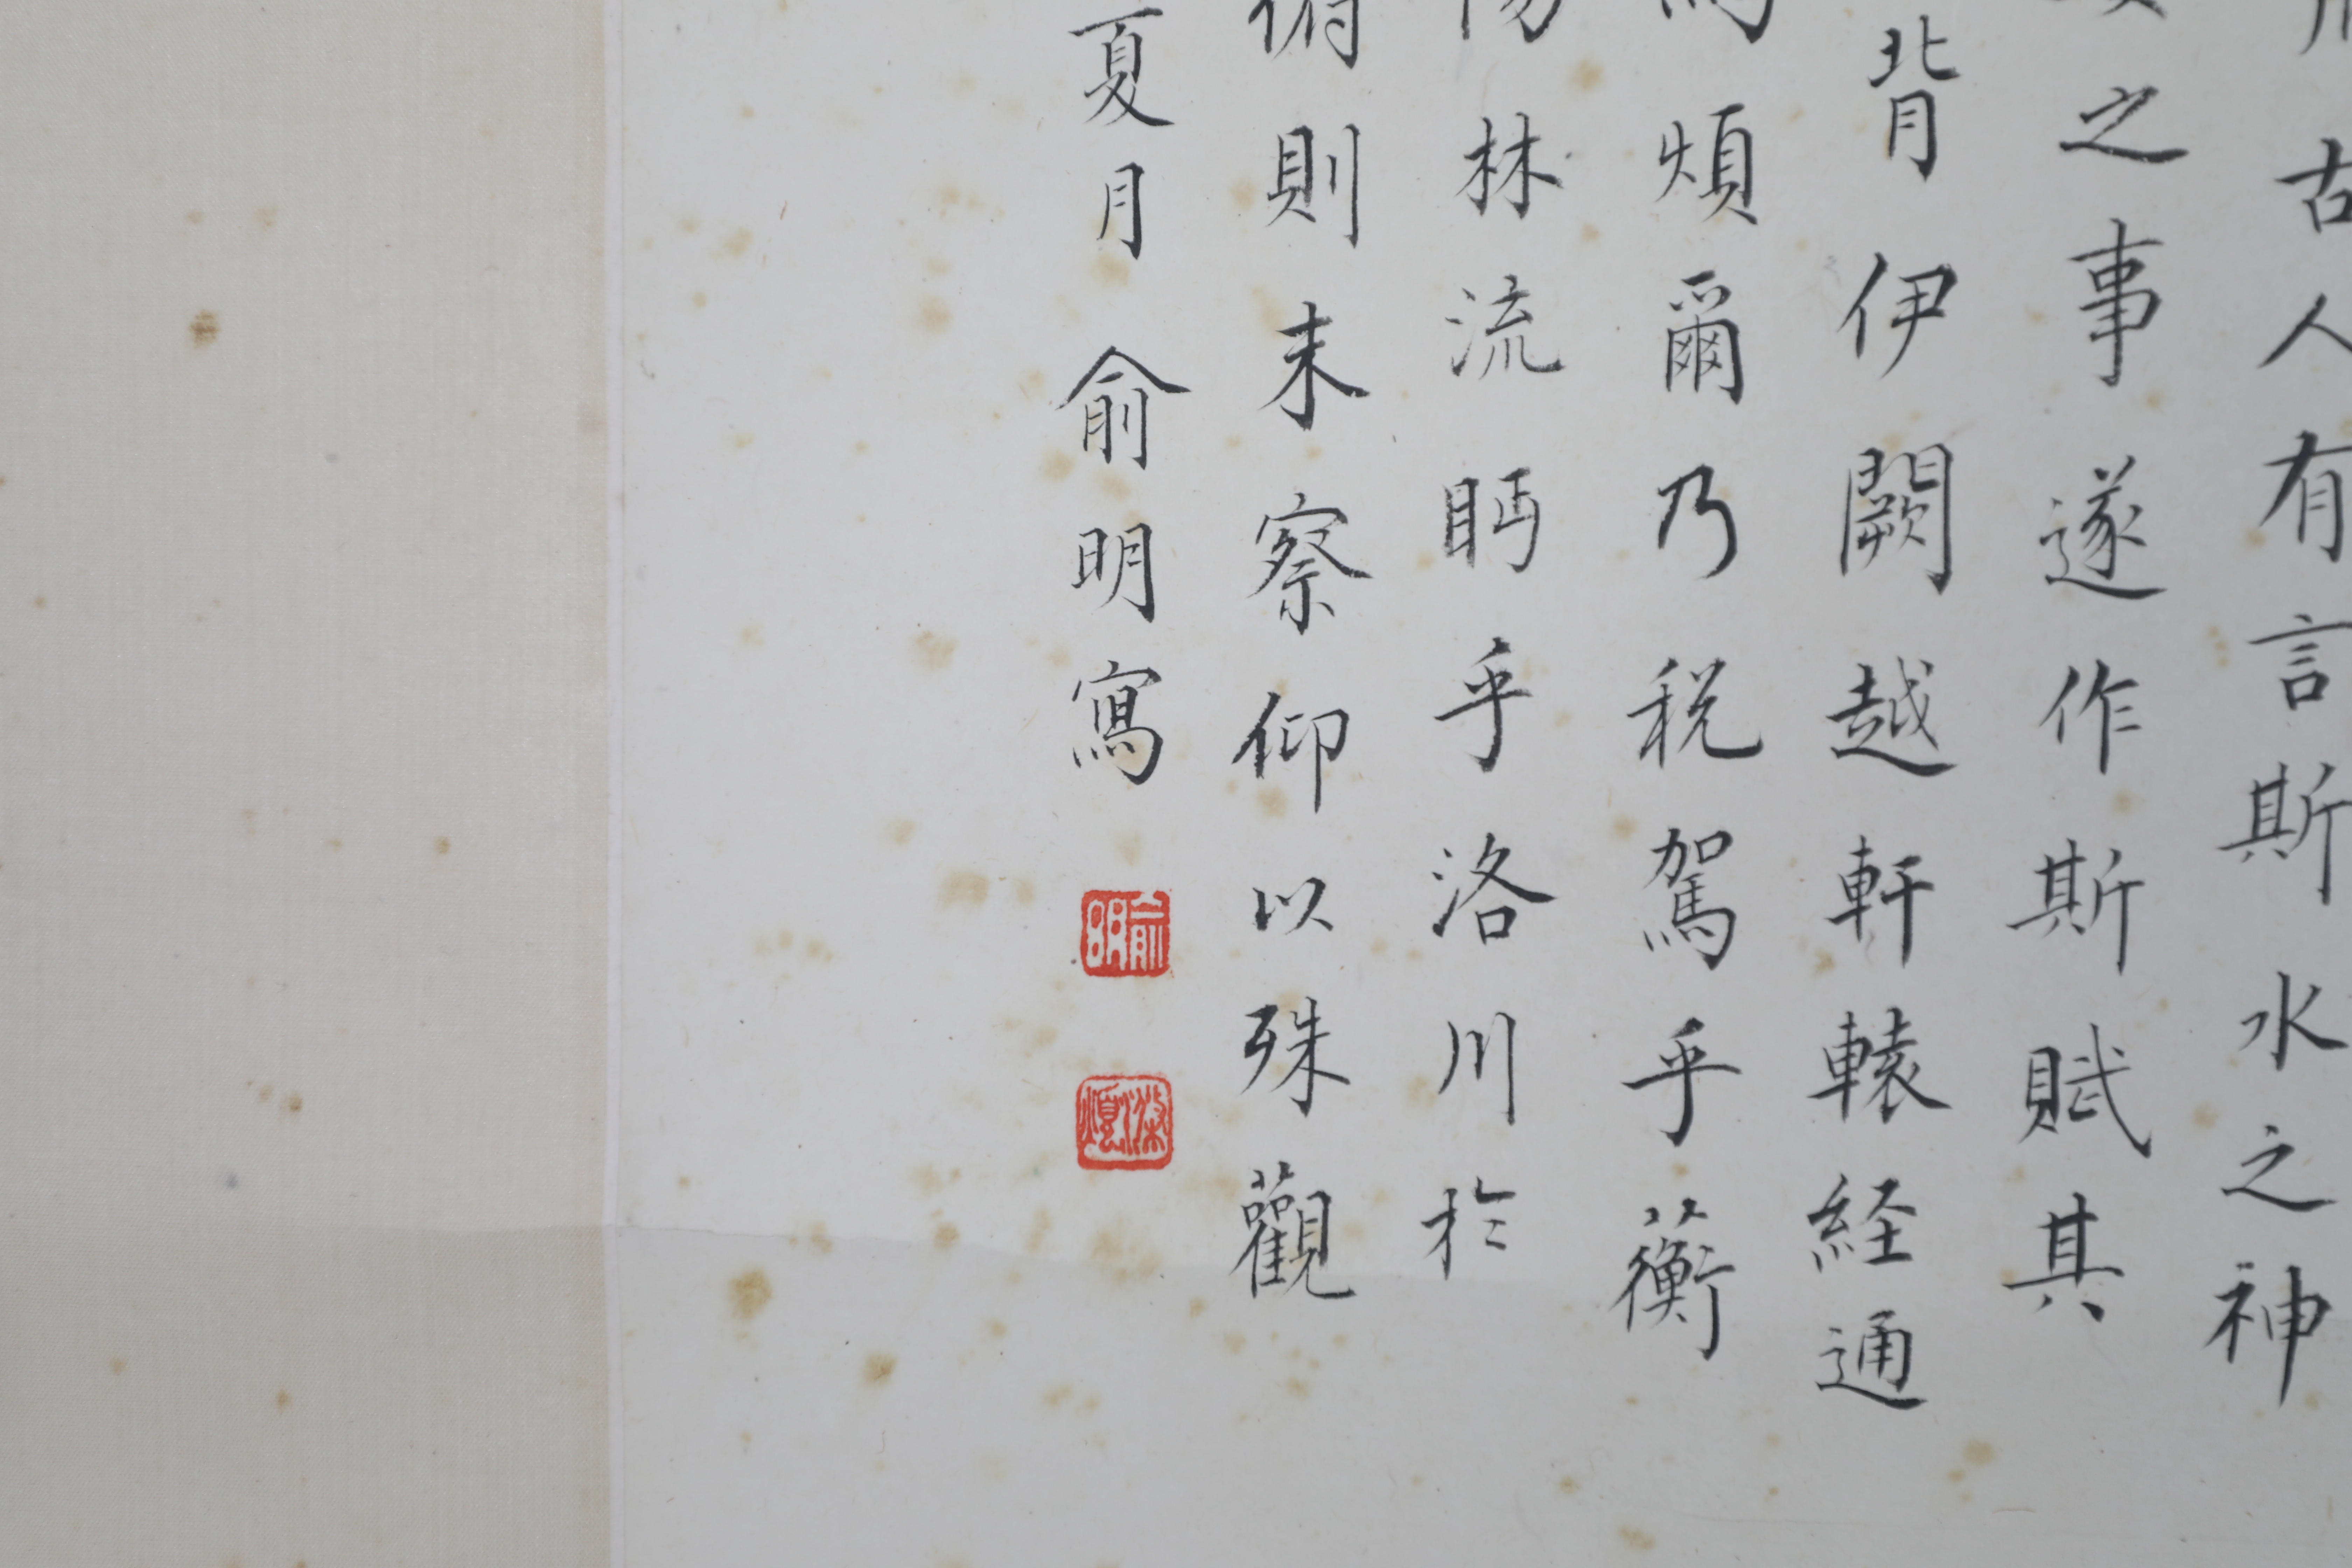 古人有言斯水之神
之事遂作斯賦其
背伊闕越軒轅経通
煩爾乃税駕乎蘅
林流眄乎洛川於
俯則未察仰以殊觀
夏月俞明寫
俞明
滌煩